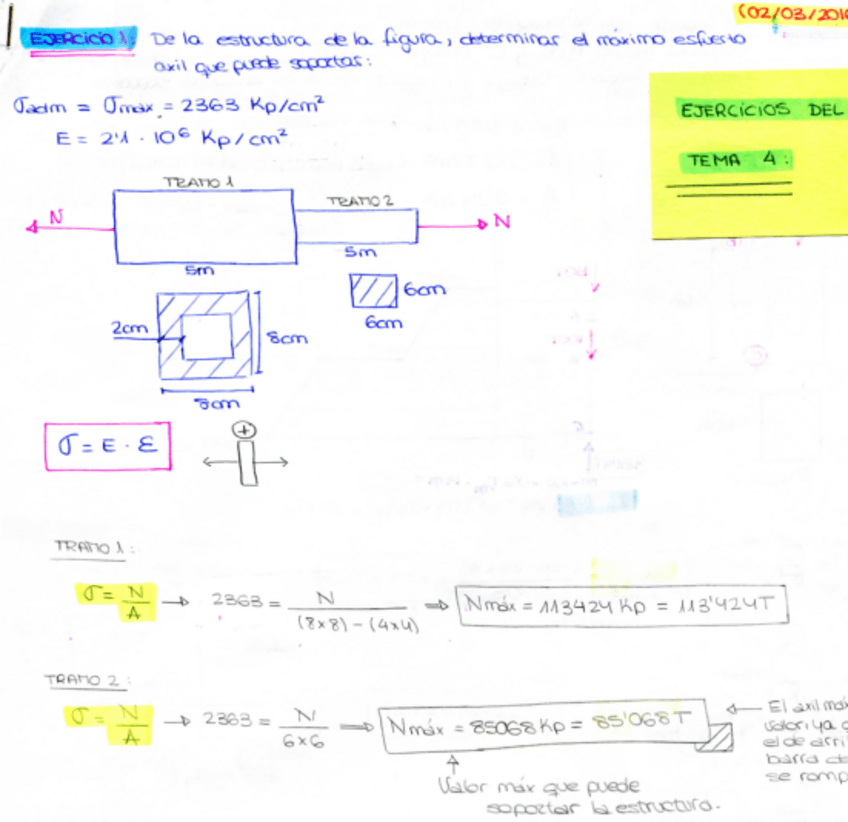 (02/03/2016
EJERCICIO 1: De la estructura de la figura, determinar el máximo esfuerzo
axil que puede soportar:
σadm = σmax = 2363 Kp/cm²
E = 2'1 · 10⁶ Kp/cm²
EJERCICIOS DEL
TEMA 4:
TRAMO 1
TRAMO 2
N
N
5m
5m
6cm
6cm
2cm
8cm
8cm
σ = E · ε
+
TRAMO 1:
σ = N/A → 2363 = N/((8x8) - (4x4)) ⇒ Nmáx = 113424 Kp = 113'424T
TRAMO 2:
σ = N/A → 2363 = N/(6x6) ⇒ Nmáx = 85068 Kp = 85'068T
← El axil máx
valor, ya q
el de arri
barra de
se romp
↑
Valor máx que puede
soportar la estructura.